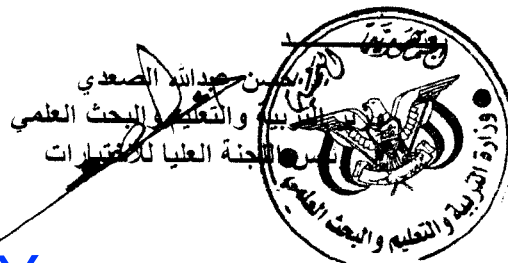 حسن عبدالله الصعدي
وزير التربية والتعليم والبحث العلمي
رئيس اللجنة العليا للاختبارات
وزارة التربية والتعليم والبحث العلمي